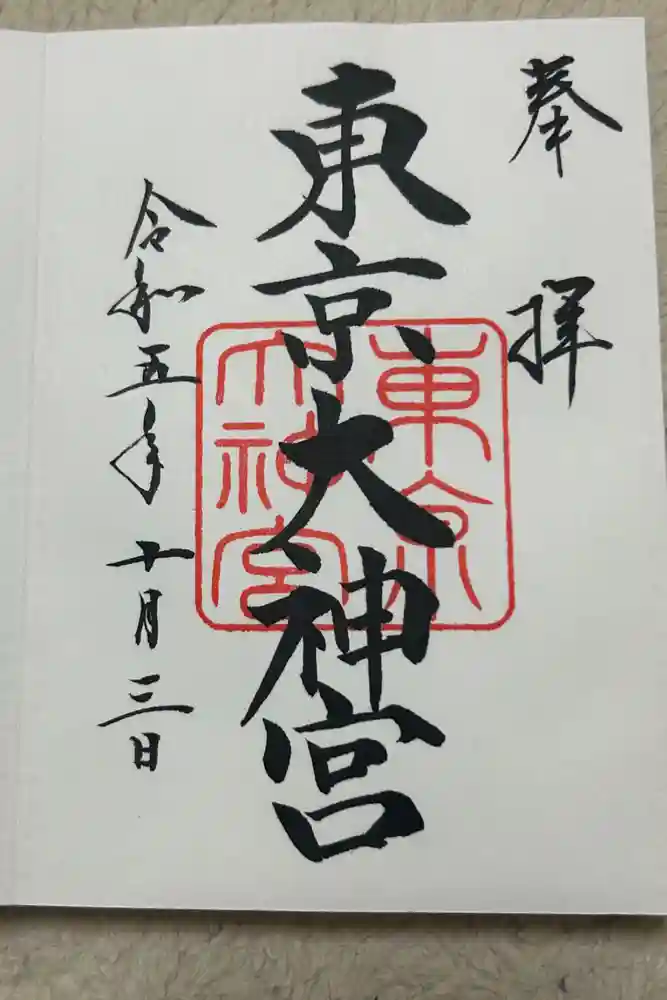 奉拝
東京大神宮
東京
大神宮
令和五年十月三日